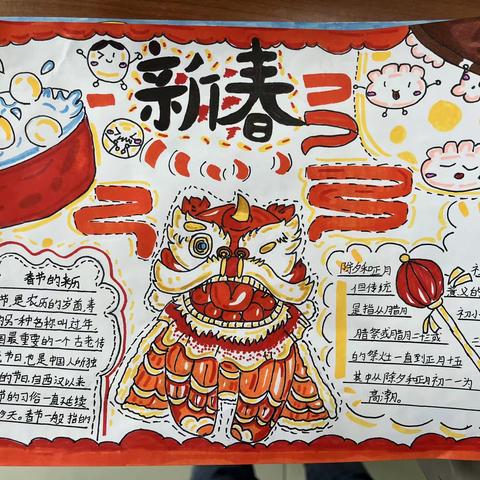 新春
春节的来历
节,是农历的岁首,春
的另一种名称叫过年,
国最重要的一个古老传
节日,也是中国人所独
的节日,自西汉以来,
节的习俗一直延续
今天。春节一般指的
除夕和正月
但传统
是指从腊月
腊祭或腊月二十三或
的祭灶一直到正月十五
其中从除夕和正月初一为
高潮。
初
意义的
初小
三